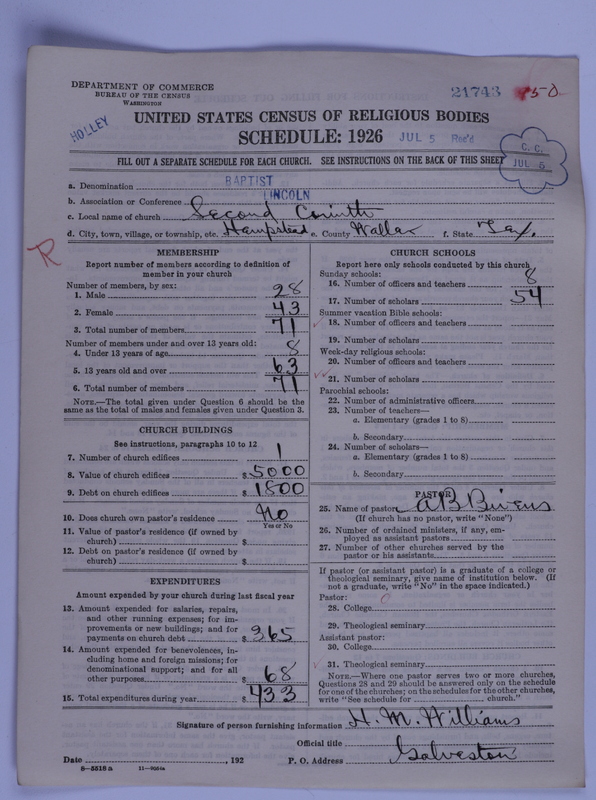 DEPARTMENT OF COMMERCE
BUREAU OF THE CENSUS
WASHINGTON
21743 850
HOLLEY
UNITED STATES CENSUS OF RELIGIOUS BODIES
SCHEDULE: 1926 JUL 5 Rec'd
C. C.
JUL 5
FILL OUT A SEPARATE SCHEDULE FOR EACH CHURCH. SEE INSTRUCTIONS ON THE BACK OF THIS SHEET
a. Denomination BAPTIST
b. Association or Conference LINCOLN
c. Local name of church Second Corinth
d. City, town, village, or township, etc. Hampstead e. County Waller f. State Tex.
R
MEMBERSHIP
Report number of members according to definition of
member in your church
Number of members, by sex:
1. Male 28
2. Female 43
3. Total number of members 71
Number of members under and over 13 years old:
4. Under 13 years of age 8
5. 13 years old and over 63
6. Total number of members 71
NOTE.—The total given under Question 6 should be the
same as the total of males and females given under Question 3.
CHURCH BUILDINGS
See instructions, paragraphs 10 to 12
7. Number of church edifices 1
8. Value of church edifices $ 5000
9. Debt on church edifices $ 1800
10. Does church own pastor's residence No
Yes or No
11. Value of pastor's residence (if owned by
church) $
12. Debt on pastor's residence (if owned by
church) $
EXPENDITURES
Amount expended by your church during last fiscal year
13. Amount expended for salaries, repairs,
and other running expenses; for im-
provements or new buildings; and for
payments on church debt $ 365
14. Amount expended for benevolences, in-
cluding home and foreign missions; for
denominational support; and for all
other purposes $ 68
15. Total expenditures during year $ 433
CHURCH SCHOOLS
Report here only schools conducted by this church
Sunday schools:
16. Number of officers and teachers 8
17. Number of scholars 54
Summer vacation Bible schools:
18. Number of officers and teachers
19. Number of scholars
Week-day religious schools:
20. Number of officers and teachers
21. Number of scholars
Parochial schools:
22. Number of administrative officers
23. Number of teachers—
a. Elementary (grades 1 to 8)
b. Secondary
24. Number of scholars—
a. Elementary (grades 1 to 8)
b. Secondary
PASTOR
25. Name of pastor A B Bivens
(If church has no pastor, write "None")
26. Number of ordained ministers, if any, em-
ployed as assistant pastors
27. Number of other churches served by the
pastor or his assistants
If pastor (or assistant pastor) is a graduate of a college or
theological seminary, give name of institution below. (If
not a graduate, write "No" in the space indicated.)
Pastor:
28. College
29. Theological seminary
Assistant pastor:
30. College
31. Theological seminary
NOTE.—Where one pastor serves two or more churches,
Questions 28 and 29 should be answered only on the schedule
for one of the churches; on the schedules for the other churches,
write "See schedule for church."
Signature of person furnishing information H. M. Williams
Official title
Date , 192 P. O. Address Galveston
8-5518 a